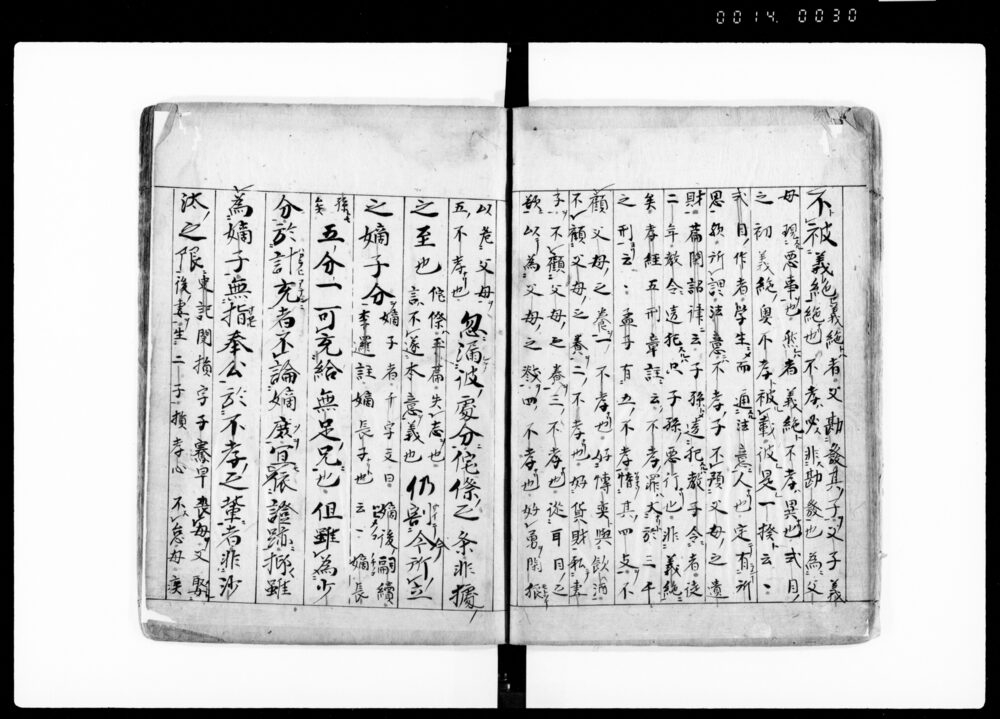 0014. 0030
不被義絶 義絶者父勘發其子父子義
絶也不孝必非勘發也為父
母現悪事也然者義絶不孝異也式目
之初義絶與不孝被載彼是一揆云々
式目作者學生而通法意人也定有所
思歟所謂法意不孝子不顧父母之遺
財篇聞詔律云子孫違犯教令者徒
二年教令違犯只子孫悪行也非義絶
矣孝經五刑章註云不孝罪大於三千
之刑云々孟子有五不孝惰其四支不
顧父母之養一不孝也好博奕與飲酒
不顧父母之養二不孝也好貨財私妻
子不顧父母之養三不孝也從耳目之
欲以為父母之戮四不孝也好勇闘狠
以危父母五不孝也 忽漏彼處分侘傺之条非據
之至也 侘傺玉篇失志也言不遂本意義也 仍割今所立
之嫡子分 嫡子者千字文曰嫡後嗣續李暹註嫡長子也云々嫡長
孫也矣 五分一可充給無足兄也但雖為少
分於計充者不論嫡庶宜依證跡抑雖
為嫡子無指奉公於不孝之輩者非沙
汰之限 東記閔損字子騫早喪母父娶後妻生二子損孝心不怠母疾